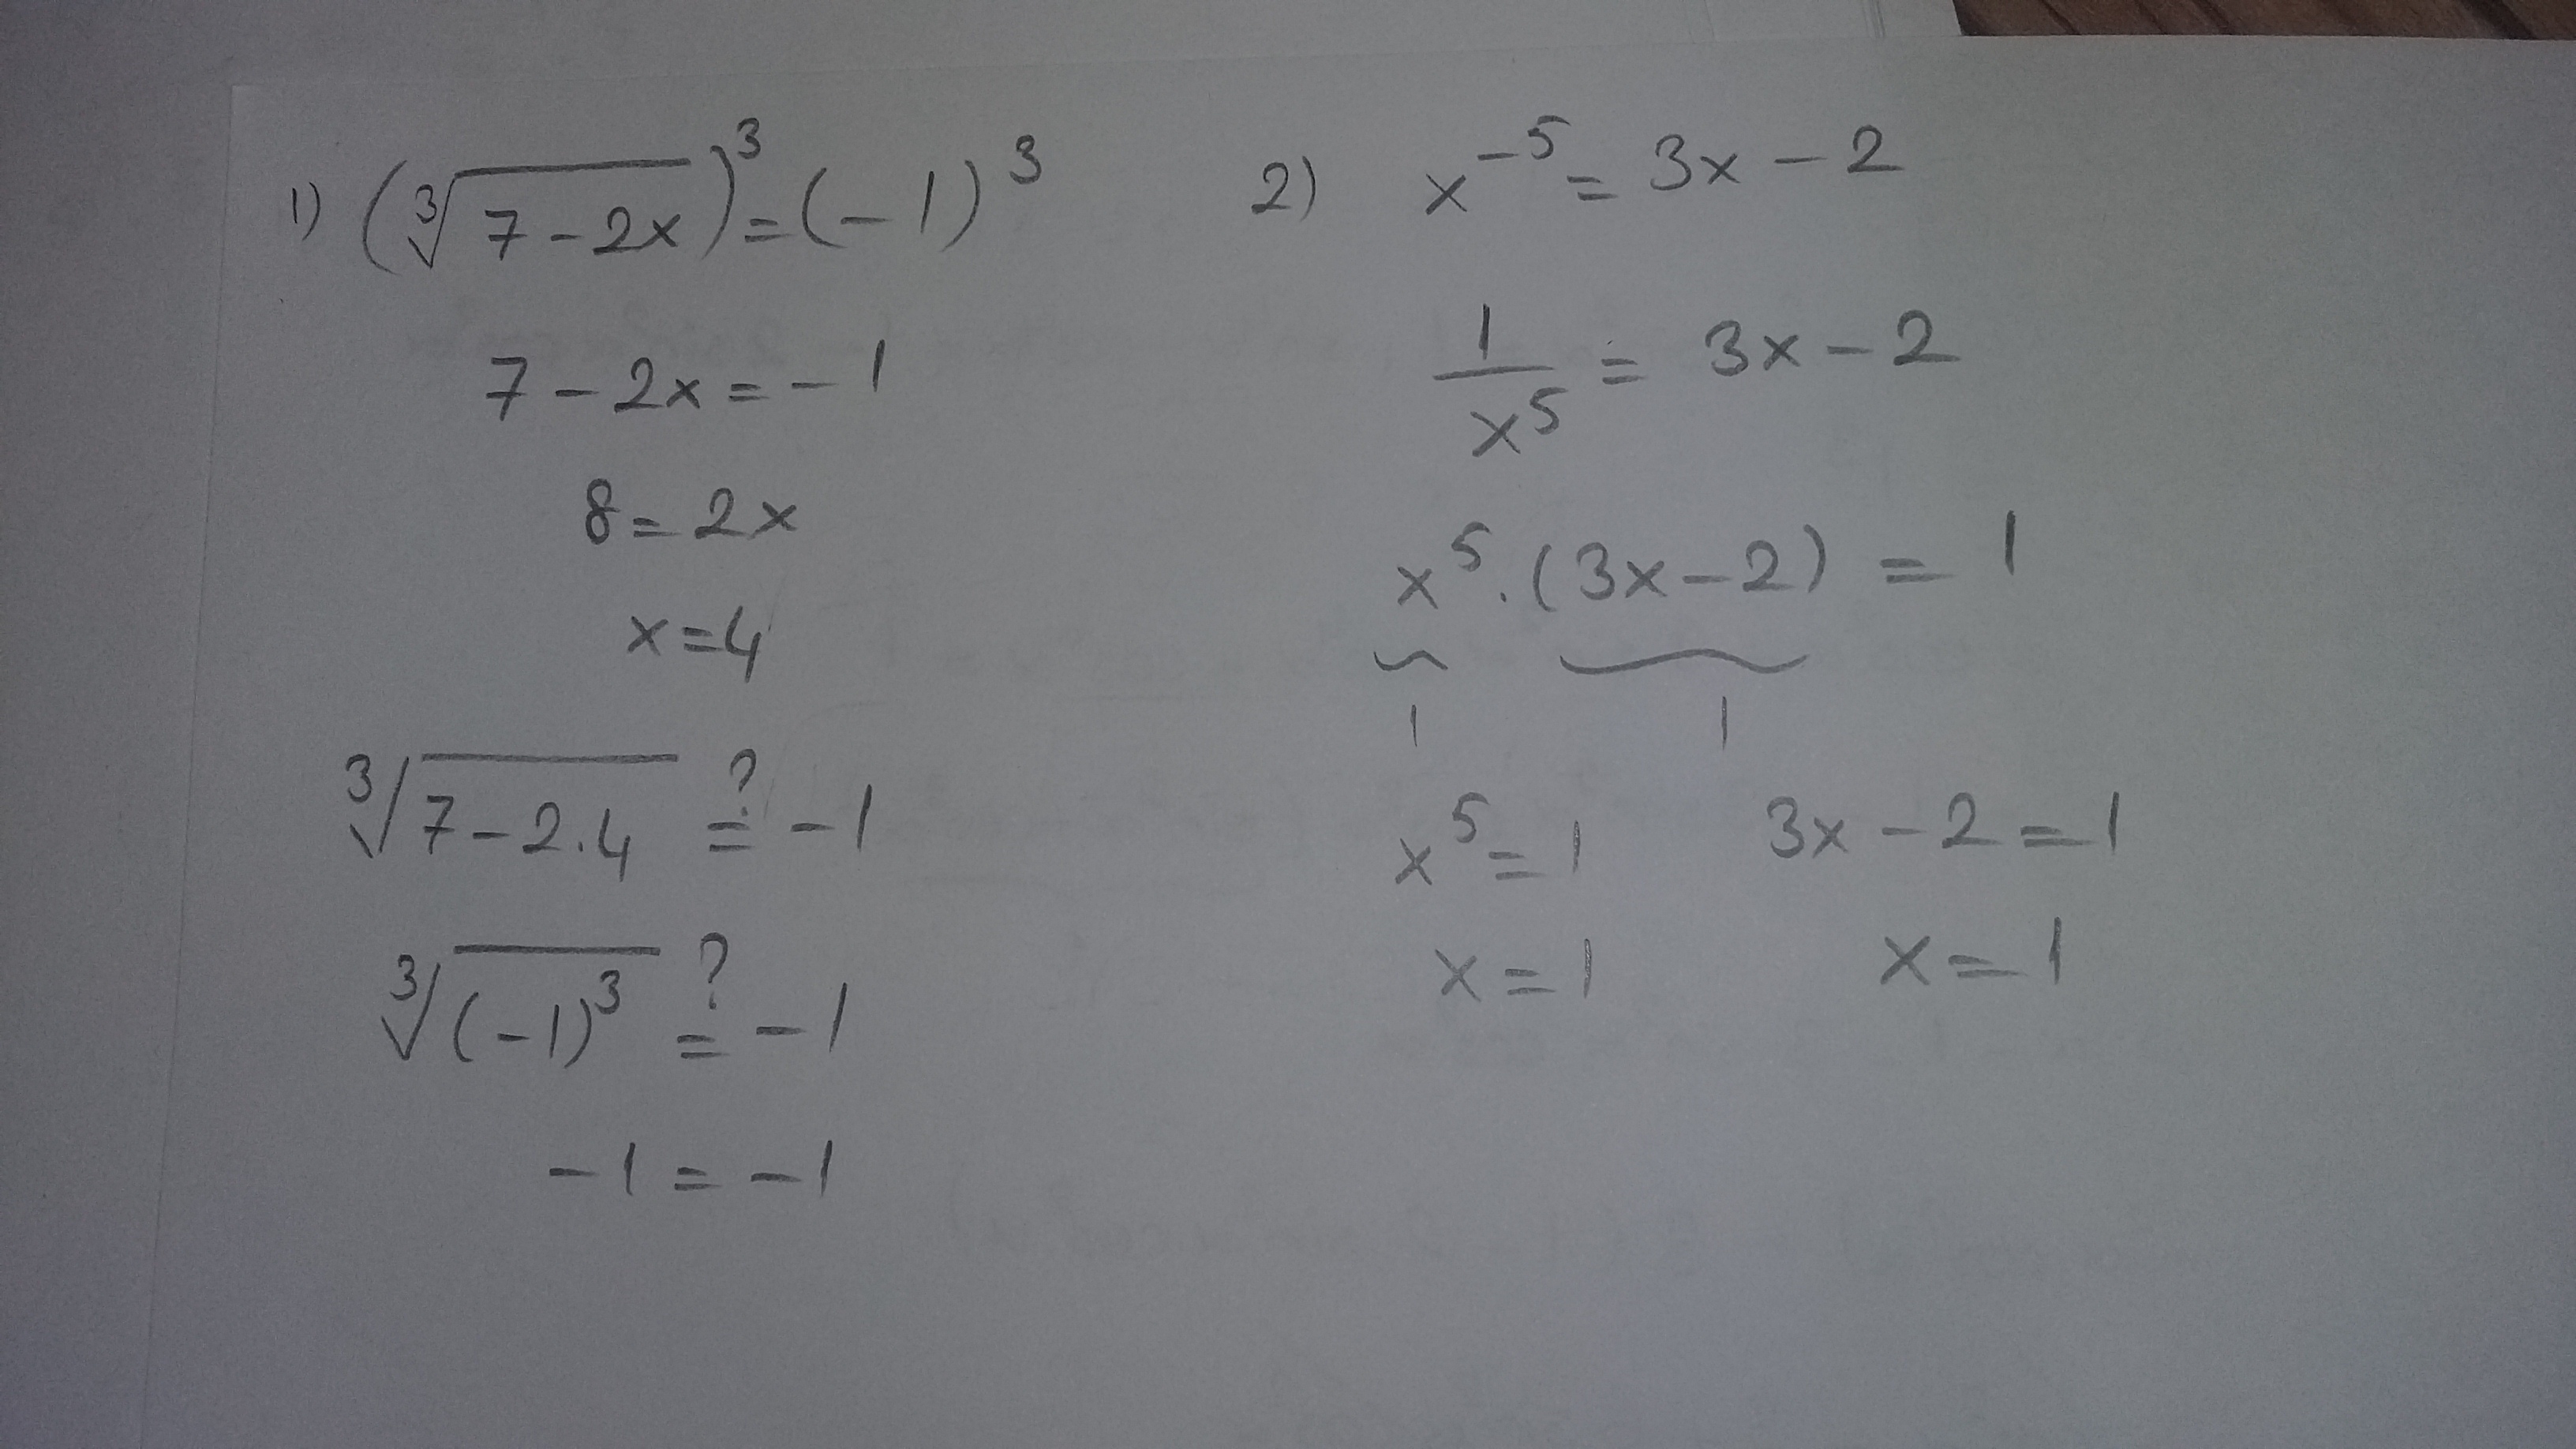 1) (∛(7-2x))³ = (-1)³
7-2x = -1
8 = 2x
x = 4
∛(7-2.4) ?= -1
∛((-1)³) ?= -1
-1 = -1
2) x⁻⁵ = 3x-2
1/x⁵ = 3x-2
x⁵.(3x-2) = 1
1 1
x⁵ = 1 3x-2 = 1
x = 1 x = 1